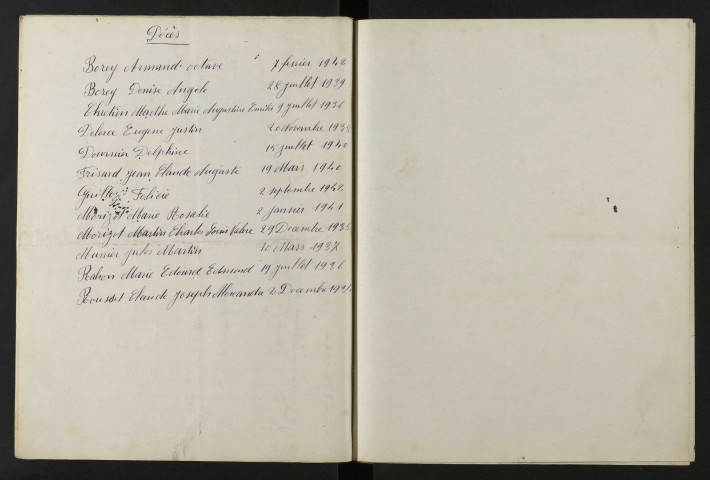 Décès
Borey Armand octave 7 février 1942
Borey Denise Angèle 28 juillet 1939
Chrétien Marthe Marie Augustine Emilie 9 juillet 1936
Delore Eugène Justin 20 Novembre
Dournier Delphine 15 juillet 1940
Frisard Jean Claude Auguste 19 Mars 1940
Félicie 2 septembre 1942
Morizot Marie Rosalie 2 janvier 1941
Morizot Martin Charles Louis 29 Décembre
Munier Jules Martin 10 Mars 1937
Rahon Marie Edouard Edmond 19 juillet 1936
Rousset Claude Joseph 2 Décembre